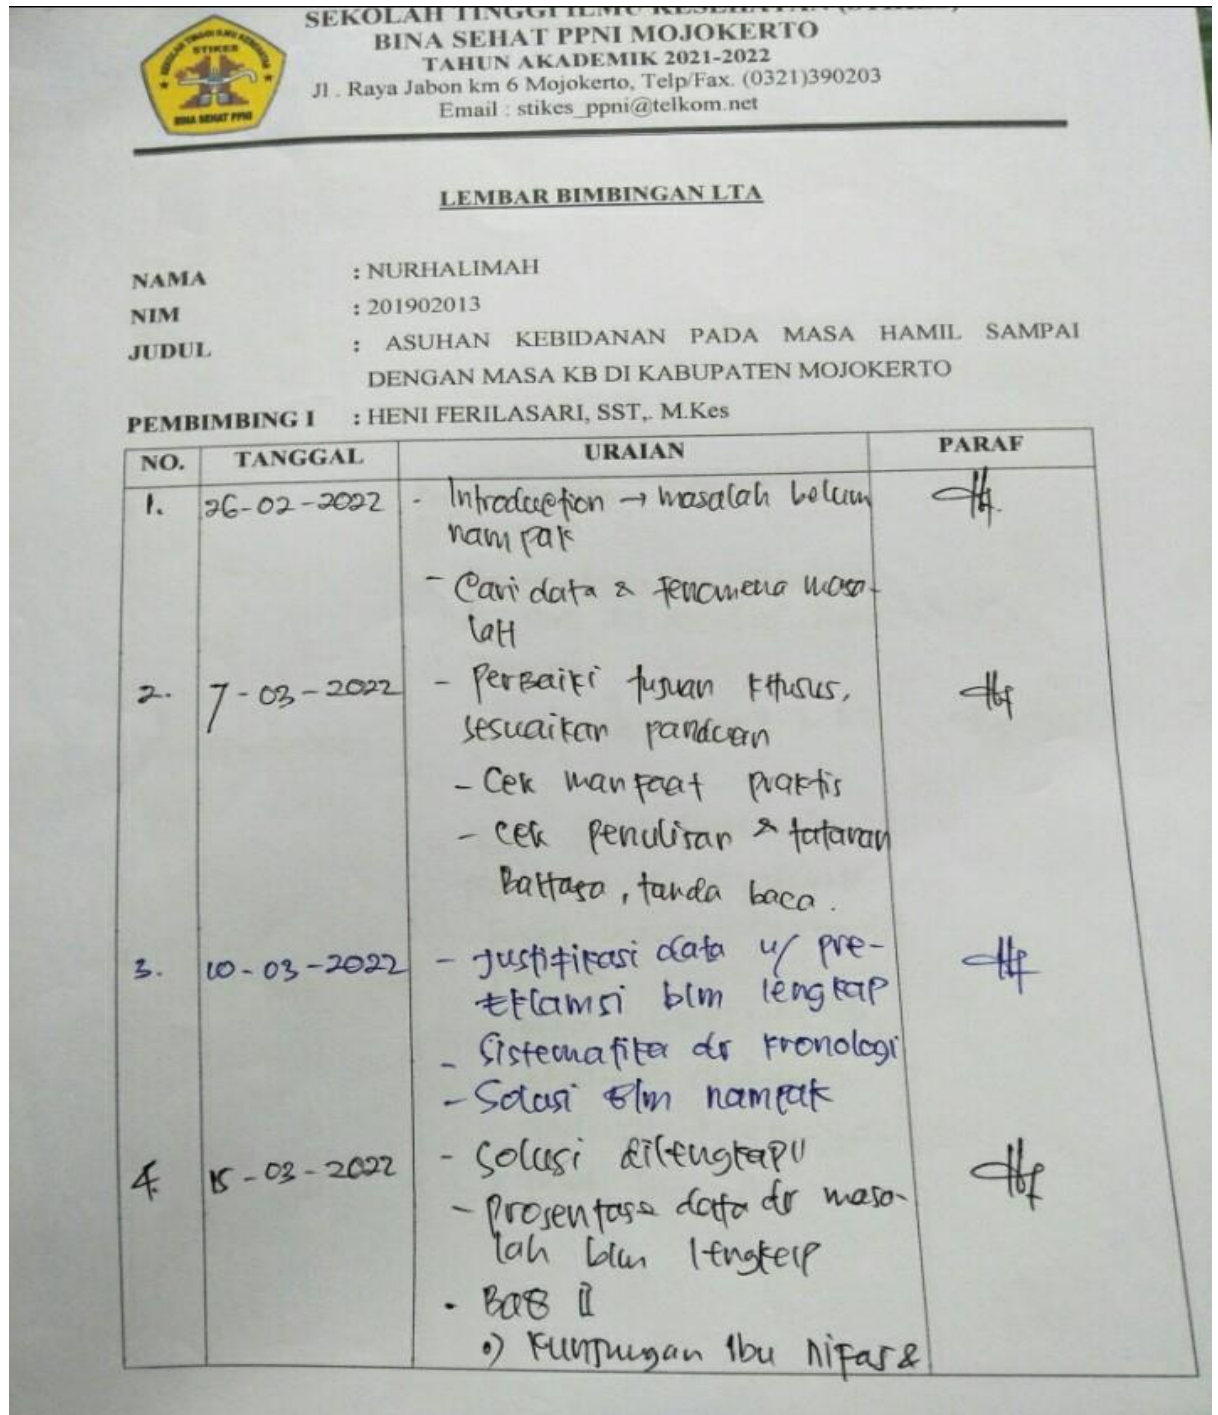 SEKOLAH TINGGI ILMU KESEHATAN (STIKES)
BINA SEHAT PPNI MOJOKERTO
TAHUN AKADEMIK 2021-2022
Jl . Raya Jabon km 6 Mojokerto, Telp/Fax. (0321)390203
Email : stikes_ppni@telkom.net
SEKOLAH TINGGI ILMU KESEHATAN
STIKES
BINA SEHAT PPNI
LEMBAR BIMBINGAN LTA
NAMA : NURHALIMAH
NIM : 201902013
JUDUL : ASUHAN KEBIDANAN PADA MASA HAMIL SAMPAI
DENGAN MASA KB DI KABUPATEN MOJOKERTO
PEMBIMBING I : HENI FERILASARI, SST,. M.Kes
NO. TANGGAL URAIAN PARAF
1. 26-02-2022 - Introduction → masalah belum
nampak
- Cari data & fenomena masa-
laH
2. 7-03-2022 - Perbaiki tujuan kHusus,
sesuaikan panduan
- Cek manfaat praktis
- cek penulisan & tataran
BaHasa, tanda baca.
3. 10-03-2022 - Justifikasi data u/ pre-
eklamsi blm lengkap
- Sistematika dr kronologi
- Solusi blm nampak
4. 15-03-2022 - Solusi dilengkapi
- prosentase data dr masa-
lah blm lengkap
- BaB II
•) Kunjungan Ibu Nifas &